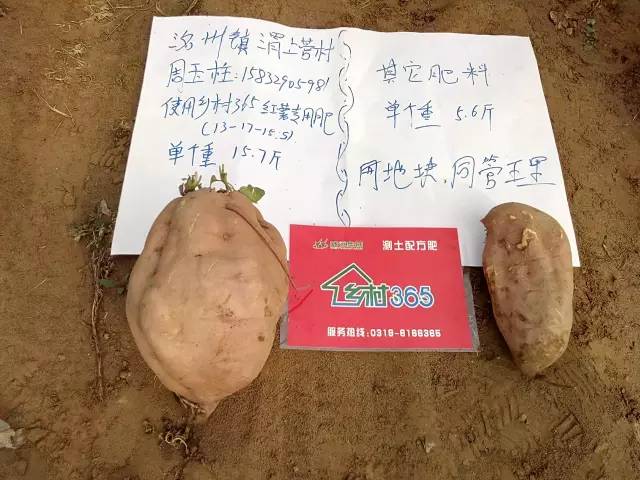 洺州镇渭上营村
周玉柱:15832905981
使用乡村365红薯专用肥
(13-17-15.S)
单个重 15.7斤
其它肥料
单个重 5.6斤
同地块,同管王里
测土配方肥
乡村365
服务热线:0319-8166365